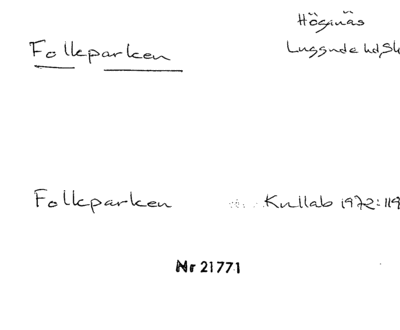 Höganäs
Folkparken
Luggude hd, Sk
Folkparken Kullab 1972:119
Nr 21771